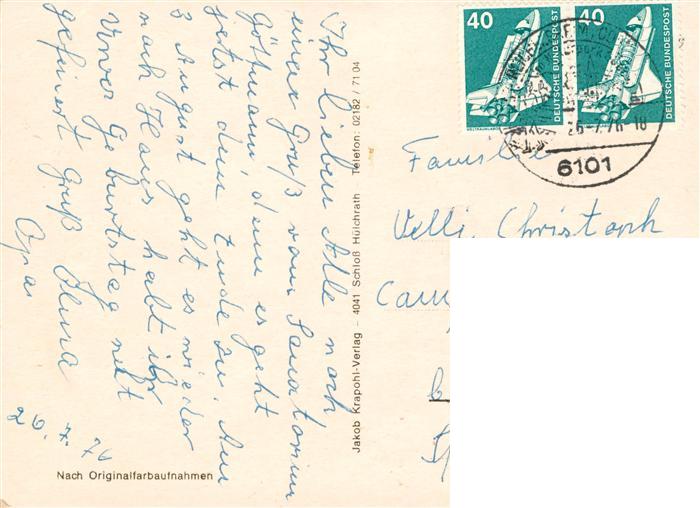 Ihr Lieben Alle noch
einen Gruß vom Sanatorium
Göttmann, denn es geht
jetzt dem Ende zu. Am
3 August geht es wieder
nach Haus, habt ihr
Uwes Geburtstag nett
gefeiert Gruß
Opa
26.7.76
Nach Originalfarbaufnahmen
Jakob Krapohl-Verlag - 4041 Schloß Hülchrath Telefon: 02182 / 71 04
40
DEUTSCHE BUNDESPOST
WELTRAUMLABOR
40
DEUTSCHE BUNDESPOST
26-7.76-18
6101
Familie
Velli, Christoph